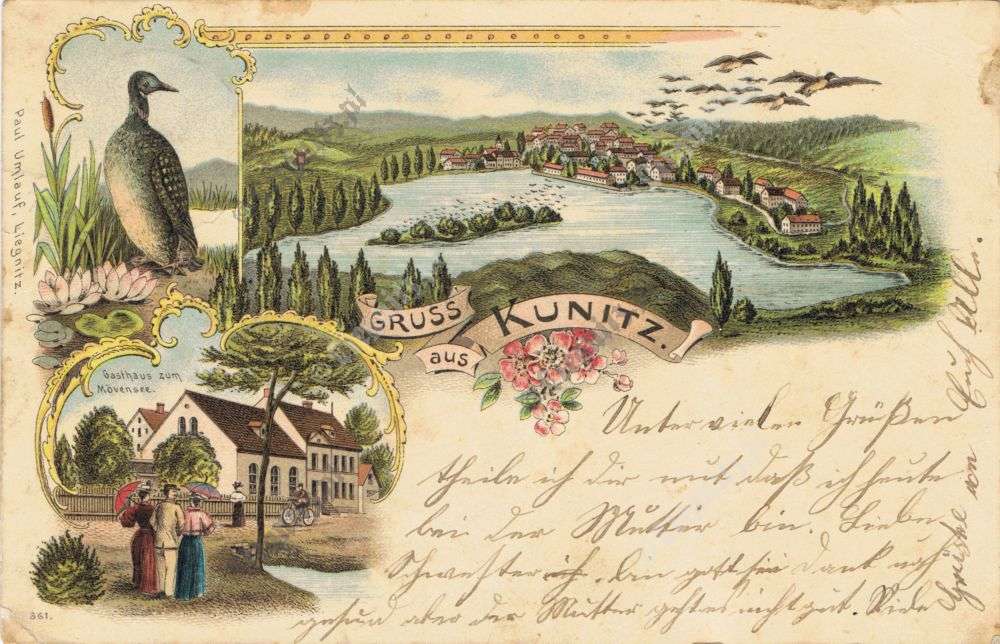 Paul Umlauf, Liegnitz.
GRUSS
aus
KUNITZ.
Gasthaus zum
Mövensee.
Unter vielen Grüßen
theile ich dir mit daß ich heute
bei der Mutter bin. Liebe
Schwester ich bin gott sei dank noch
gesund aber der Mutter geht es nicht gut. Viele
Grüße von Euch allen.
361.